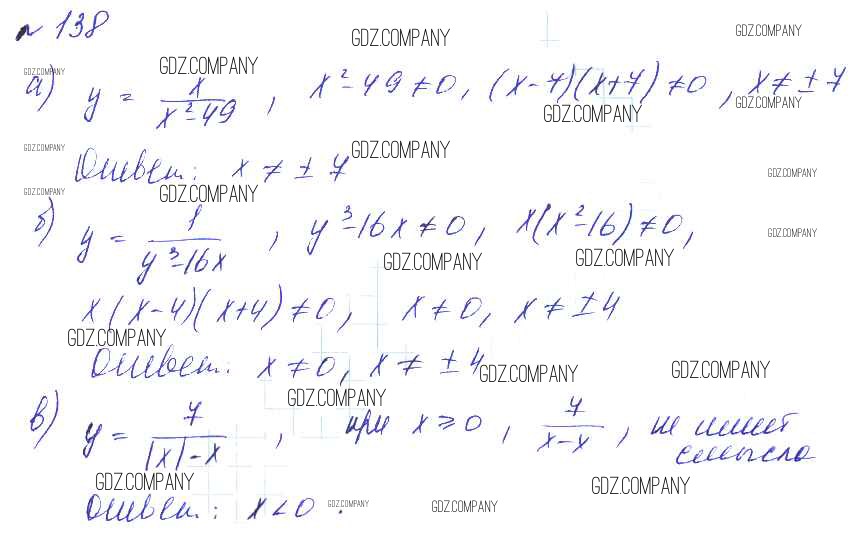 № 138
GDZ.COMPANY
GDZ.COMPANY
GDZ.COMPANY
GDZ.COMPANY
а) y = x / (x² - 49), x² - 49 ≠ 0, (x - 7)(x + 7) ≠ 0, x ≠ ± 7
GDZ.COMPANY
GDZ.COMPANY
GDZ.COMPANY
GDZ.COMPANY
Ответ: x ≠ ± 7
GDZ.COMPANY
GDZ.COMPANY
GDZ.COMPANY
б) y = 1 / (y³ - 16x), y³ - 16x ≠ 0, x(x² - 16) ≠ 0,
GDZ.COMPANY
GDZ.COMPANY
GDZ.COMPANY
x(x - 4)(x + 4) ≠ 0, x ≠ 0, x ≠ ± 4
GDZ.COMPANY
Ответ: x ≠ 0, x ≠ ± 4
GDZ.COMPANY
GDZ.COMPANY
GDZ.COMPANY
в) y = 7 / (|x| - x), при x ≥ 0, 7 / (x - x), не имеет
смысла
GDZ.COMPANY
GDZ.COMPANY
Ответ: x < 0.
GDZ.COMPANY
GDZ.COMPANY